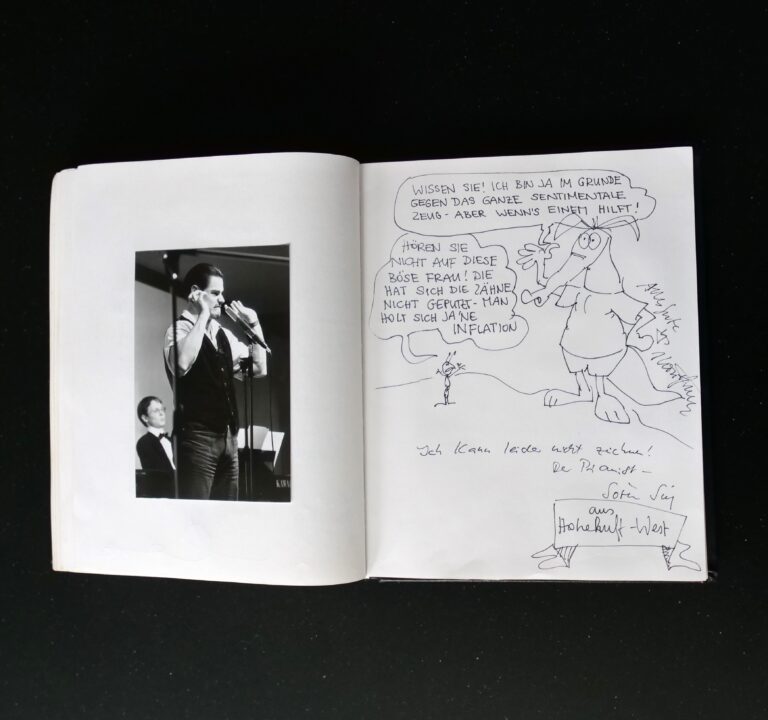 WISSEN SIE! ICH BIN JA IM GRUNDE
GEGEN DAS GANZE SENTIMENTALE
ZEUG - ABER WENN'S EINEM HILFT!
HÖREN SIE
NICHT AUF DIESE
BÖSE FRAU! DIE
HAT SICH DIE ZÄHNE
NICHT GEPUTZT - MAN
HOLT SICH JA 'NE
INFLATION
Alles Gute
Ich kann leider nicht zeichnen!
Der Pianist -
aus
Hohekuft-West
KAWA